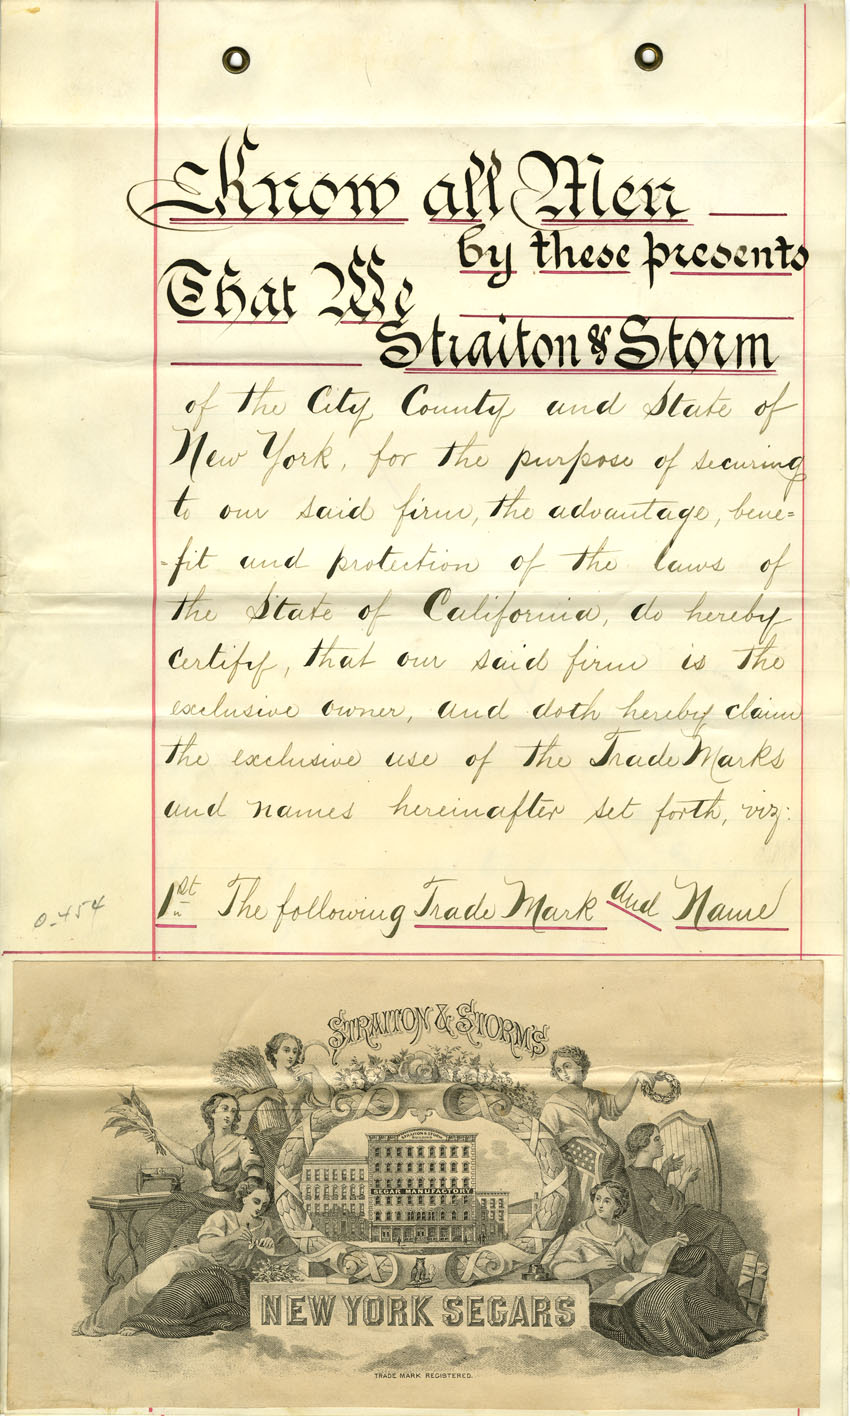 Know all Men
by these presents
That We
Straiton & Storm
of the City County and State of
New York, for the purpose of securing
to our said firm, the advantage, bene=
=fit and protection of the laws of
the State of California, do hereby
certify, that our said firm is the
exclusive owner, and doth hereby claim
the exclusive use of the Trade Marks
and names hereinafter set forth, viz:
0-454
1st The following Trade Mark and Name
STRAITON & STORM'S
STRAITON & STORM
BUILDING
SEGAR MANUFACTORY
NEW YORK SEGARS
TRADE MARK REGISTERED.